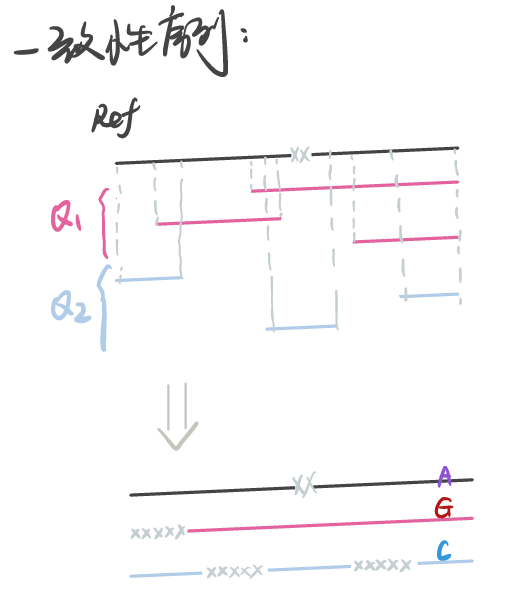 一致性序列：
Ref
xx
Q1
Q2
xx
A
xxxxx
G
xxxxx
xxxxx
C